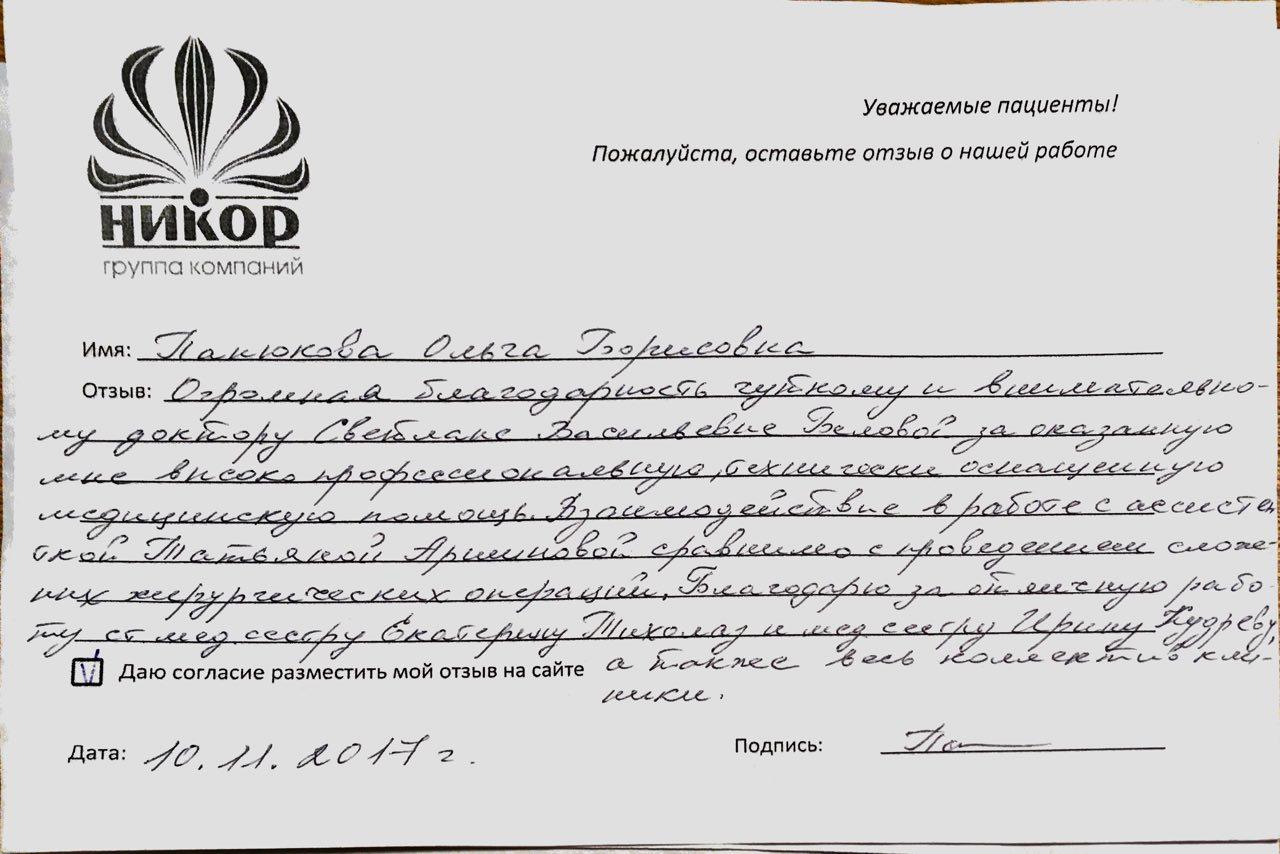 НИКОР
группа компаний
Уважаемые пациенты!
Пожалуйста, оставьте отзыв о нашей работе
Имя: Панюкова Ольга Борисовна
Отзыв: Огромная благодарность чуткому и внимательно-
му доктору Светлане Васильевне Беловой за оказанную
мне высоко профессиональную, технически оснащенную
медицинскую помощь. Взаимодействие в работе с ассистен
ткой Татьяной Аршиновой сравнимо с проведением слож-
ных хирургических операций. Благодарю за отличную рабо-
ту ст. мед. сестру Екатерину Тихолаз и мед сестру Ирину Кудреву,
Даю согласие разместить мой отзыв на сайте а также весь коллектив кли-
ники.
Дата: 10.11.2017 г.
Подпись: Па